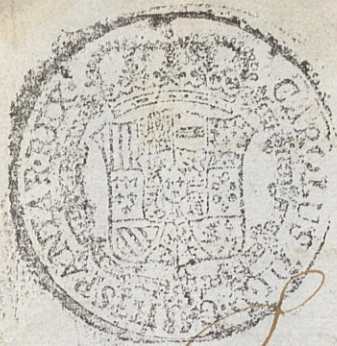 CAROLUS
D·G·HISPANIAR·REX